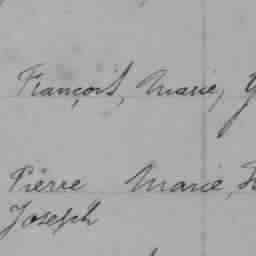 François, Marie,
Pièrre Marie,
Joseph